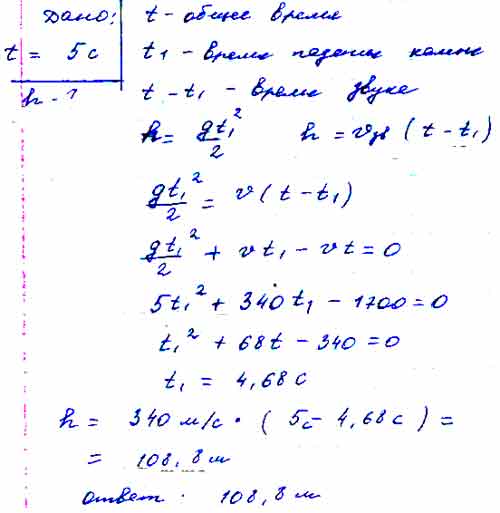 Дано: t - общее время
t = 5с t₁ - время падения камня
h - ? t - t₁ - время звука
h = gt₁²/2 h = vзв (t - t₁)
gt₁²/2 = v (t - t₁)
gt₁²/2 + vt₁ - vt = 0
5t₁² + 340t₁ - 1700 = 0
t₁² + 68t - 340 = 0
t₁ = 4,68с
h = 340 м/с · (5с - 4,68с) =
= 108,8м
ответ: 108,8м